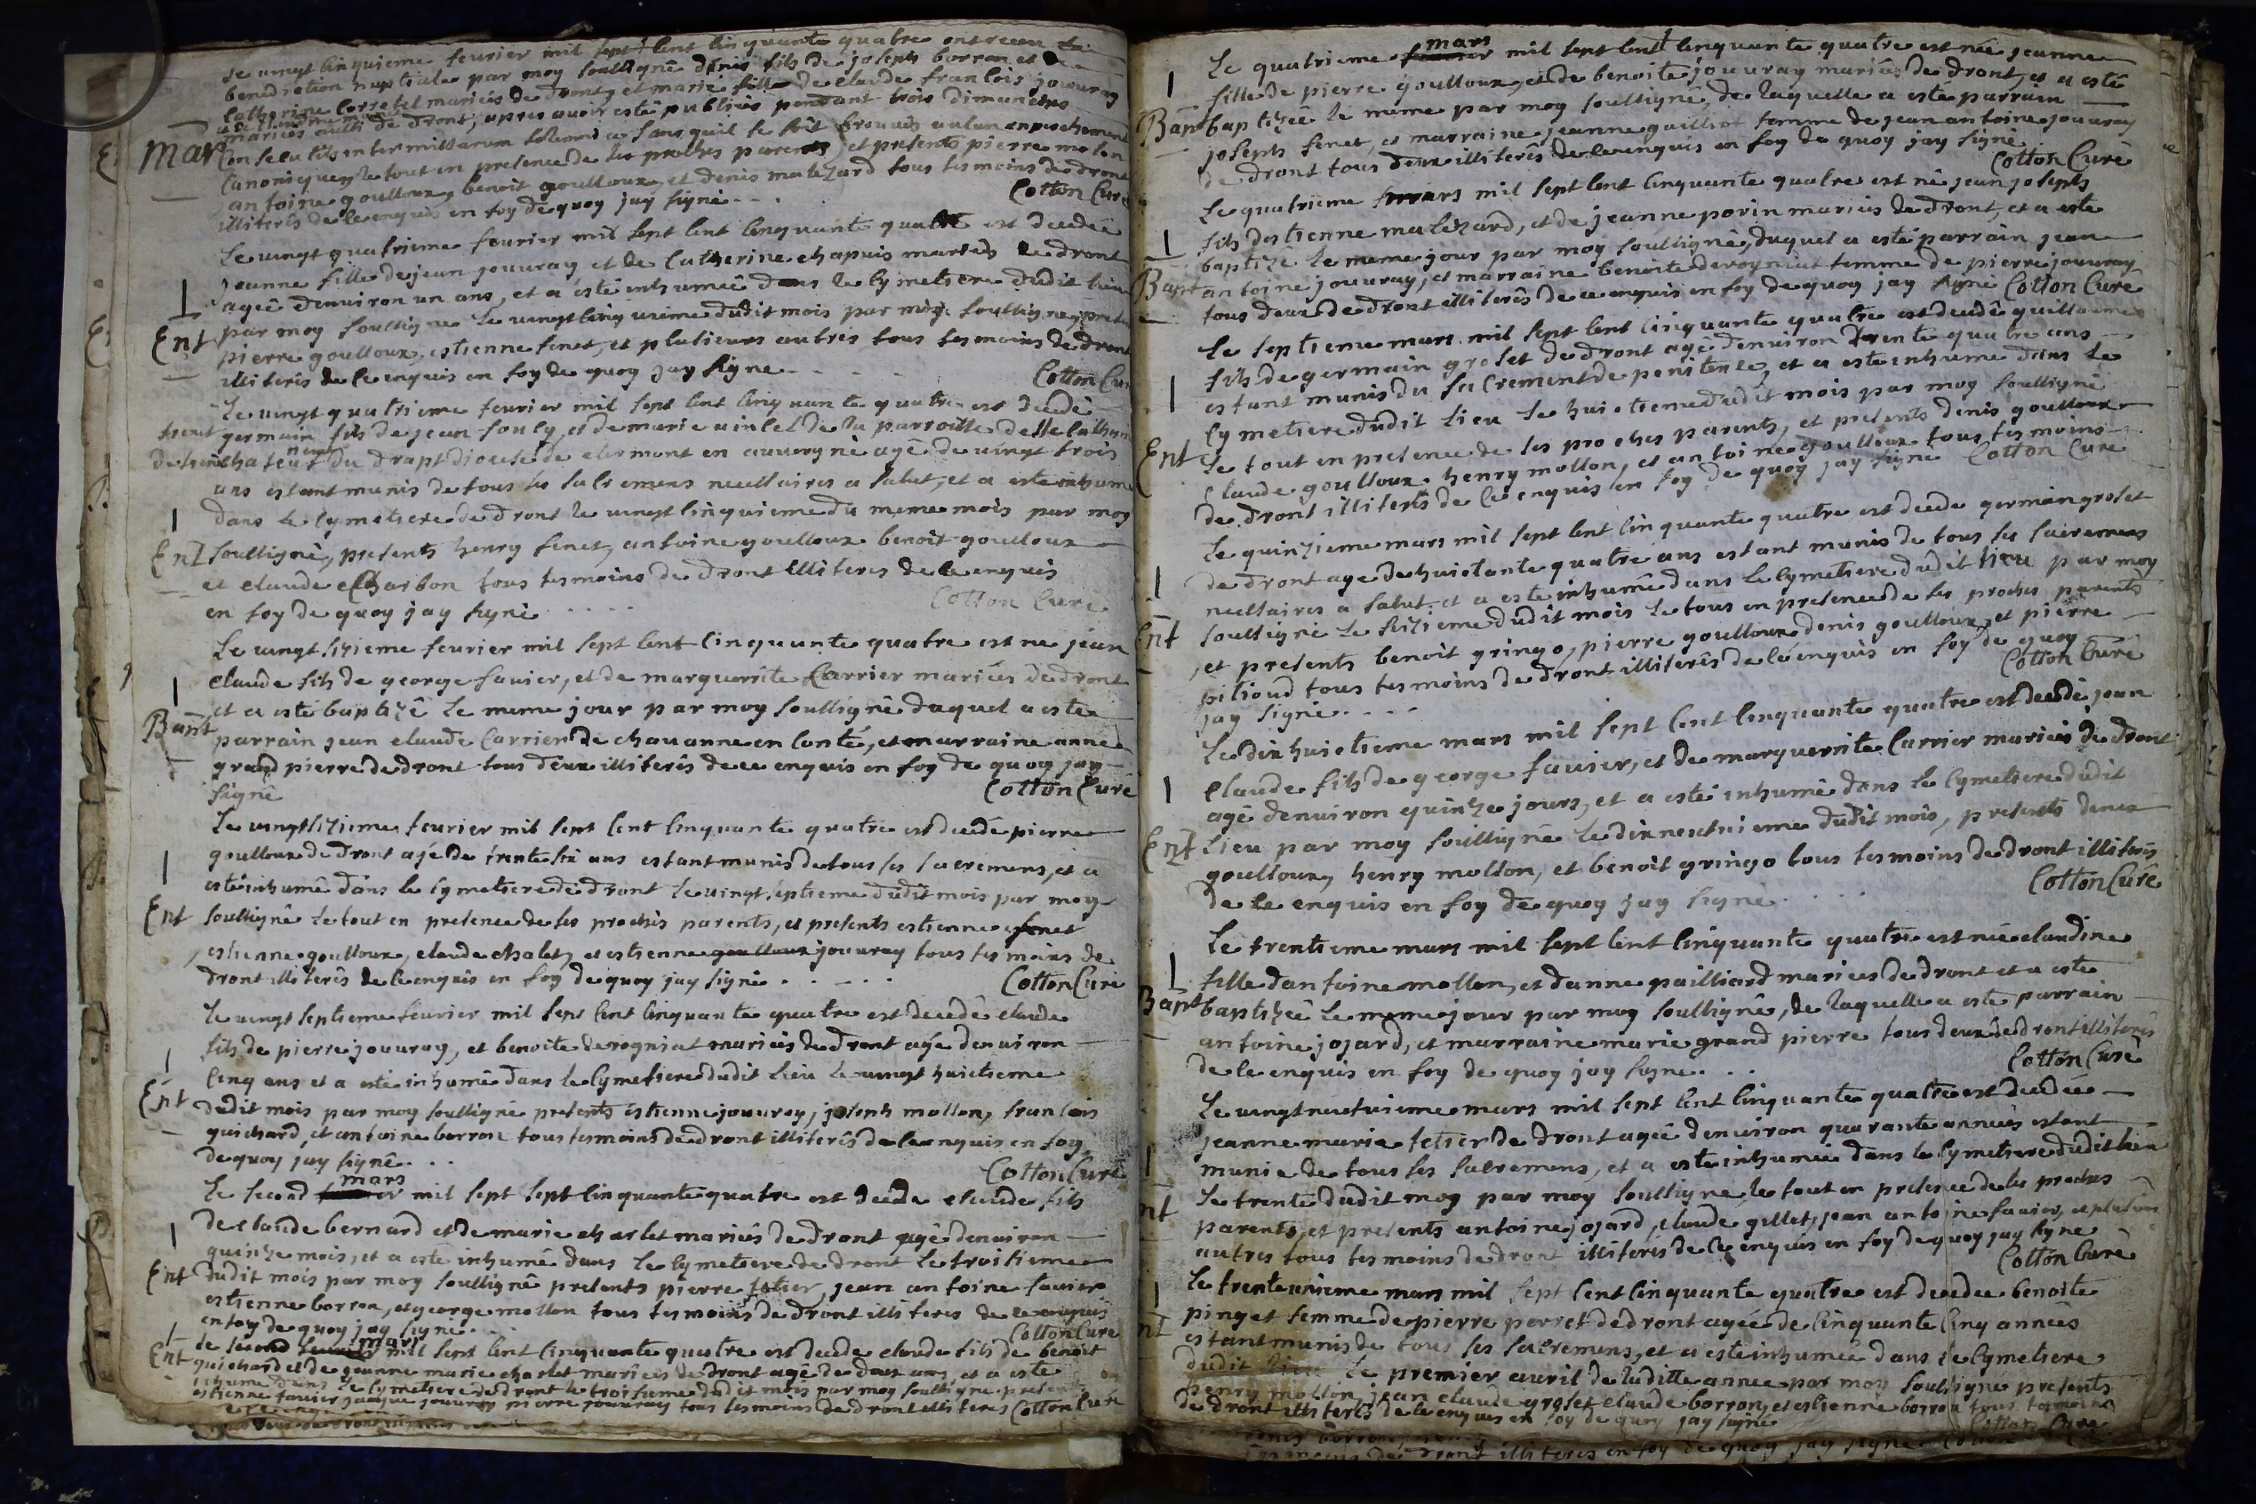 Le vingt cinquieme fevrier mil sept cent cinquante quatre ont receu la
benediction nuptiale par moy soussigné denis fils de joseph borron et de
Catherine Corretel mariés de dront, et marie fille de claude francois jouuray
mariés aussi de dront, apres avoir esté publiés pendant trois dimanches
Mar sans quil se soit trouvés aucun enpeschement
Canonique, le tout en presence de ses proches parents, et presents pierre molon
antoine goulloux, benoit goulloux, et denis malezard tous tesmoins de dront
illiterés de ce enquis en foy de quoy jay signé - - .
Cotton Curé
Le vingt quatrieme fevrier mil sept cent cinquante quatre est decedée
jeanne fille de jean jouuray et de Catherine chapuis mariés de dront
agée denviron un ans, et a esté inhumée dans le Cymetiere dudit lieu
par moy soussigne le vingt cinq uieme dudit mois par moy soussigne, presents
Ent pierre goulloux, estienne fenet, et plusieurs autres tous tesmoins de dront
illiterés de ce enquis en foy de quoy jay signe - - - - -
Cotton Cur
Le vingt quatrieme fevrier mil sept cent cinquante quatre est decedé
germain fils de jean fouly, et de marie vinlet de la parroisse de
chateau neuf du drapt diocese de clermont en auvergne agé de vingt trois
ans estant munis de tous les sacremens necessaires a salut, et a esté inhumé
dans le Cymetiere de dront le vingt cinquieme du meme mois par moy
Ent soussigné, presents henry fenet, antoine goulloux benoit goulloux
et claude Charbon tous tesmoins de dront illiteres de ce enquis
en foy de quoy jay signé . . . . .
Cotton Curé
Le vingt sizieme fevrier mil sept cent cinquante quatre est ne jean
claude fils de george favier, et de marguerite Carrier mariés de dront
et a esté baptizé le meme jour par moy soussigné duquel a esté
Bapt parrain jean claude Carrier de chavanne en Conté, et marraine anne
grand pierre de dront tous deux illiterés de ce enquis en foy de quoy jay
signé
Cotton Curé
Le vingt sizieme fevrier mil sept cent cinquante quatre est decedé pierre
goulloux de dront agé de trente six ans estant munis de tous ses sacremens, et a
esté inhumé dans le Cymetiere de dront le vingt septieme dudit mois par moy
Ent soussigné le tout en presence de ses prochés parents, et presents estienne fenet
, estienne goulloux, claude chalet, et estienne goulloux jouuray tous tesmoins de
dront illiterés de ce enquis en foy de quoy jay signé . . - . .
Cotton Curé
Le vingt septieme fevrier mil sept cent cinquante quatre est decedé claude
fils de pierre jouuray, et benoite derogniat mariés de dront age denviron
Cinq ans et a esté inhumé dans le Cymetiere dudit lieu le vingt huictieme
Ent dudit mois par moy soussigné presents estienne jouuray, joseph mollon, francois
guichard, et antoine borron tous tesmoins de dront illiterés de ce enquis en foy
de quoy jay signé . . .
Cotton Curé
mars
Le second fevrier mil sept sept cinquante quatre est decedé claude fils
de claude bernard et de marie charlet mariés de dront agé denviron
quinze mois, et a esté inhumé dans le Cymetiere de dront le troisieme
Ent dudit mois par moy soussigné presents pierre tetier, jean antoine favier
estienne borron, et george mollon tous tesmoins de dront illiteres de ce enquis
en foy de quoy jay signé . . .
Cotton Curé
mars
Le second fevrier mil sept cent cinquante quatre est decedé claude fils de benoit
Ent guichard et de jeanne marie charlet mariés de dront agé de deux ans, et a esté
inhumé dans le Cymetiere de dront le troisieme dudit mois par moy soussigne presents
estienne favier jacque jouuray pierre jouuray tous tesmoins de dront illiteres Cotton Curé
mars
Le quatrieme fevrier mil sept cent cinquante quatre est née jeanne
fille de pierre goulloux, et de benoite jouuray mariés de dront, et a esté
Bapt baptizée le meme par moy soussigné, de laquelle a esté parrain
joseph fenet, et marraine jeanne guilliot femme de jean antoine jouuray
de dront tous deux illiterés de ce enquis en foy de quoy jay signé
Cotton Curé
Le quatrieme mars mil sept cent cinquante quatre est né jean joseph
fils destienne malezard, et de jeanne porin mariés de dront, et a esté
baptizé le meme jour par moy soussigné, duquel a esté parrain jean
Bapt antoine jouuray, et marraine benoite derogniat femme de pierre jouuray
tous deux de dront illiterés de ce enquis en foy de quoy jay signé Cotton Curé
Le septieme mars mil sept cent cinquante quatre est decedé guillaume
fils de germain groset de dront agé denviron trente quatre ans
estant munis du sacrement de penitence, et a esté inhumé dans le
Cymetiere dudit lieu le huictieme dudit mois par moy soussigné
Ent le tout en presence de ses proches parents, et presents denis goulloux
claude goulloux, henry mollon, et antoine goulloux tous tesmoins
de dront illiterés de ce enquis en foy de quoy jay signé Cotton Curé
Le quinzieme mars mil sept cent cinquante quatre est decedé germain groset
de dront age de huictante quatre ans estant munis de tous ses sacremens
necessaires a salut, et a esté inhumé dans le Cymetiere dudit lieu par moy
Ent soussigné le seizieme dudit mois le tous en presence de ses proches parents
, et presents benoit gringo, pierre goulloux denis goulloux, et pierre
pilioud tous tesmoins de dront illiterés de ce enquis en foy de quoy
jay signé - - - -
Cotton Curé
Le dix huictieme mars mil sept cent cinquante quatre est decedé jean
claude fils de george favier, et de marguerite Carrier mariés de dront
agé denviron quinze jours, et a esté inhumé dans le Cymetiere dudit
Ent Lieu par moy soussigné le dix neufvieme dudit mois, presents denis
goulloux, henry mollon, et benoit gringo tous tesmoins de dront illiterés
de ce enquis en foy de quoy jay signé . . .
Cotton Curé
Le trentieme mars mil sept cent cinquante quatre est née claudine
fille dantoine mollon, et danne pailliard mariés de dront et a esté
Bapt baptizée le meme jour par moy soussigné, de laquelle a esté parrain
antoine jojard, et marraine marie grand pierre tous deux de dront illiterés
de ce enquis en foy de quoy jay signe . . .
Cotton Curé
Le vingt neufvieme mars mil sept cent cinquante quatre est decedée
jeanne marie tetier de dront agée denviron quarante années estant
munie de tous ses sacremens, et a esté inhumée dans le Cymetiere dudit lieu
nt le trente dudit moy par moy soussigne, le tout en presence de ses proches
parents, et presents antoine jojard, claude gillet, jean antoine favier, et plusieurs
autres tous tesmoins de dront illiterés de ce enquis en foy de quoy jay signe
Cotton Curé
Le trente unieme mars mil sept cent cinquante quatre est decedée benoite
nt pinget femme de pierre perret de dront agée de Cinquante Cinq années
estant munis de tous ses sacremens, et a esté inhumée dans le Cymetiere
dudit lieu le premier avril de laditte année par moy soussigné presents
henry mollon, jean claude groset claude borron, et estienne borron tous tesmoins
de dront illiterés de ce enquis en foy de quoy jay signé
Cotton Curé
de dront illiteres en foy de quoy jay signé Cotton Curé